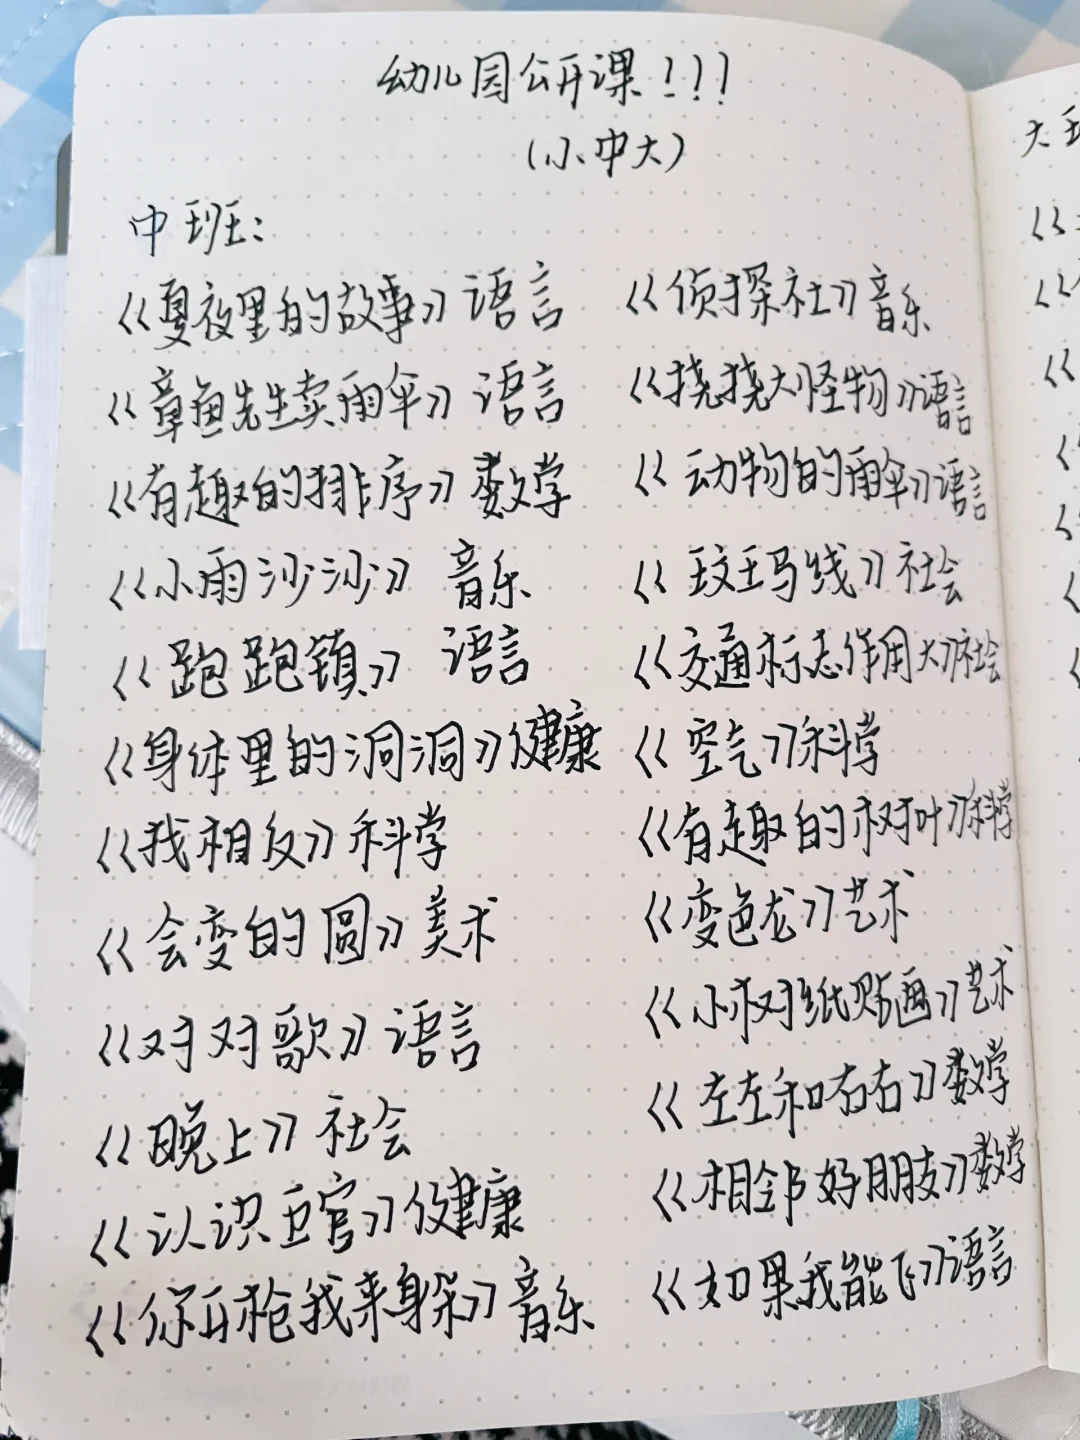 幼儿园公开课!!!
(小中大)
中班:
《夏夜里的故事》语言
《章鱼先生卖雨伞》语言
《有趣的排序》数学
《小雨沙沙》音乐
《跑跑镇》语言
《身体里的洞洞》健康
《找相反》科学
《会变的圆》美术
《对对歌》语言
《晚上》社会
《认识五官》健康
《你开枪我来躲》音乐
《侦探社》音乐
《挠挠大怪物》语言
《动物的雨伞》语言
《斑马线》社会
《交通标志作用大》社会
《空气》科学
《有趣的树叶》科学
《变色龙》艺术
《小树纸贴画》艺术
《左左和右右》数学
《相邻好朋友》数学
《如果我能飞》语言
大班